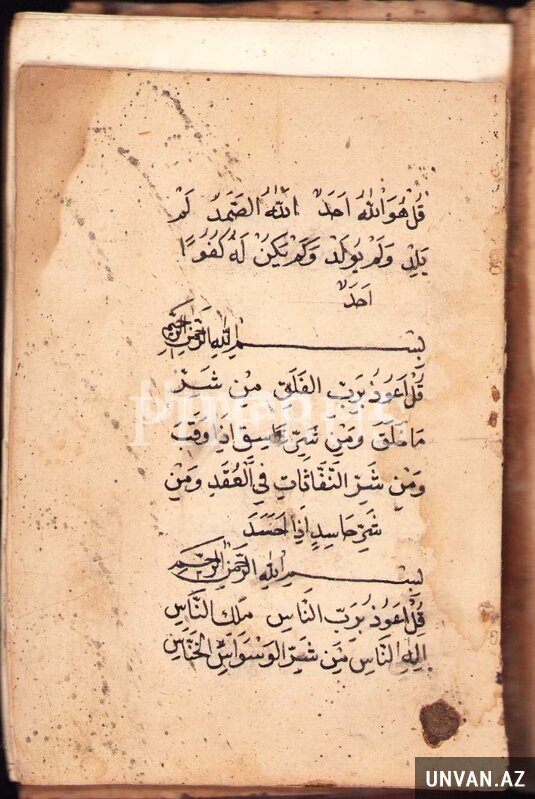 قُلْ هُوَ اللّٰهُ اَحَدٌ اَللّٰهُ الصَّمَدُ لَمْ
يَلِدْ وَلَمْ يُولَدْ وَلَمْ يَكُنْ لَهُ كُفُوًا
اَحَدٌ
بِسْمِ اللّٰهِ الرَّحْمٰنِ الرَّحِيمِ
قُلْ اَعُوذُ بِرَبِّ الْفَلَقِ مِنْ شَرِّ
مَا خَلَقَ وَمِنْ شَرِّ غَاسِقٍ اِذَا وَقَبَ
وَمِنْ شَرِّ النَّفَّاثَاتِ فِي الْعُقَدِ وَمِنْ
شَرِّ حَاسِدٍ اِذَا حَسَدَ
بِسْمِ اللّٰهِ الرَّحْمٰنِ الرَّحِيمِ
قُلْ اَعُوذُ بِرَبِّ النَّاسِ مَلِكِ النَّاسِ
اِلٰهِ النَّاسِ مِنْ شَرِّ الْوَسْوَاسِ الْخَنَّاسِ
UNVAN.AZ